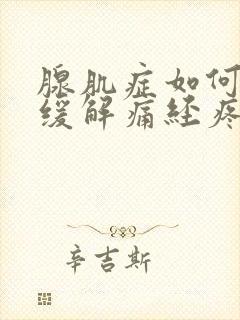 腺肌症如何
缓解痛经疼
辛吉斯